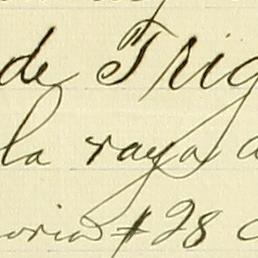 de Trig
la raya a
oria $28 c